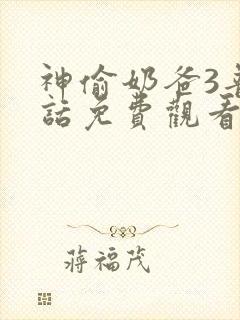 神偷奶爸3普
話免費觀看
蔣福茂